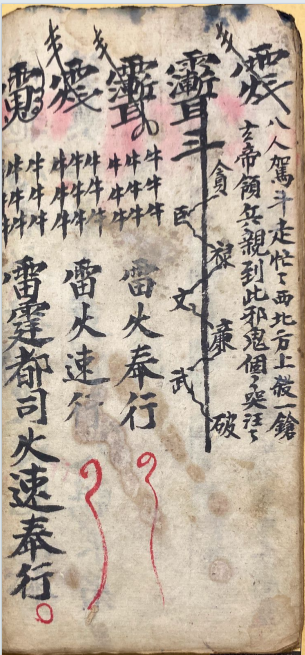 八人駕斗走忙〻西北方上發一鎗
玄帝領兵親到此邪鬼個〻哭汪〻
貪
巨
祿
文
廉
武
破
牛牛牛
牛牛牛
牛牛牛
雷火奉行
牛牛牛
牛牛牛
牛牛牛
雷火速行
雷霆都司火速奉行